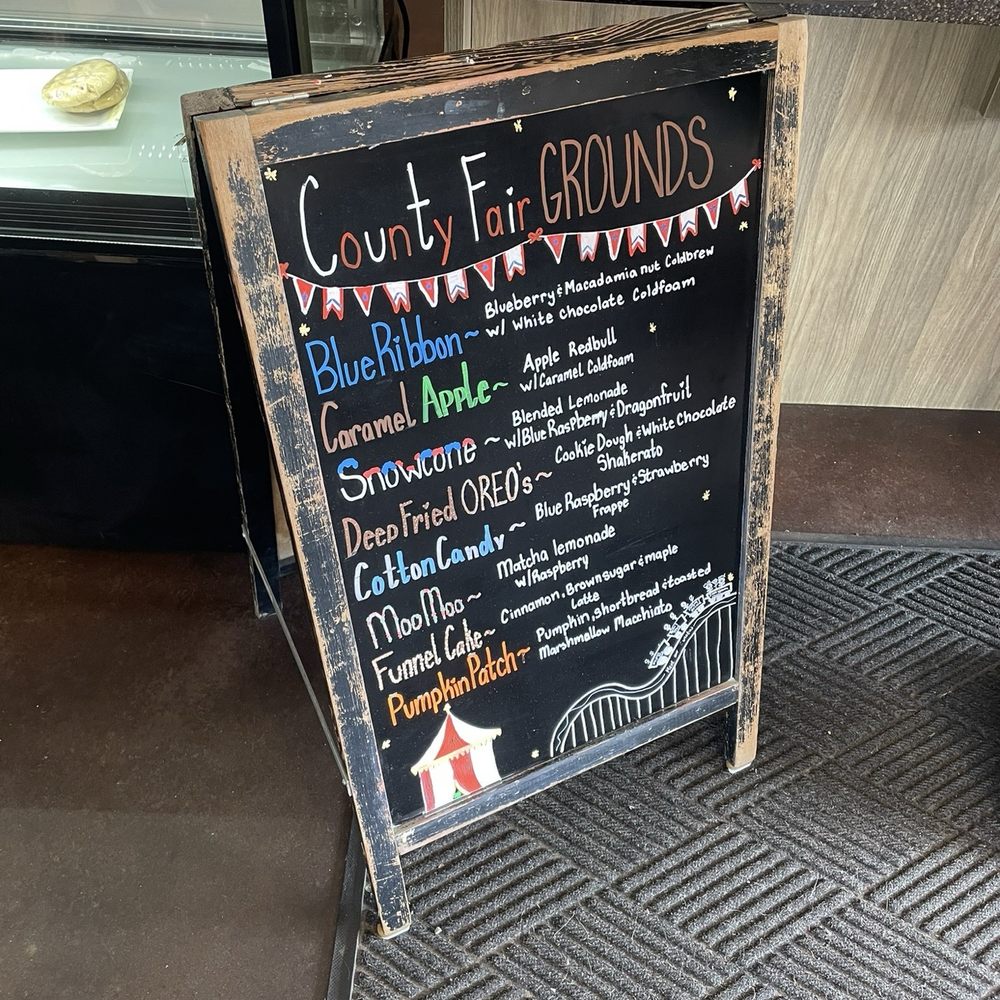 County Fair GROUNDS
Blue Ribbon~ Blueberry & Macadamia nut Coldbrew
w/ White Chocolate Coldfoam
Caramel Apple~ Apple Redbull
w/ Caramel Coldfoam
Snowcone ~ Blended Lemonade
w/ Blue Raspberry & Dragonfruit
Deep Fried OREO's~ Cookie Dough & White Chocolate
Shakerato
Cotton Candy ~ Blue Raspberry & Strawberry
Frappe
MooMoo~ Matcha lemonade
w/ Raspberry
Funnel Cake~ Cinnamon, Brown sugar & maple
Latte
Pumpkin Patch~ Pumpkin, Shortbread & toasted
Marshmellow Macchiato